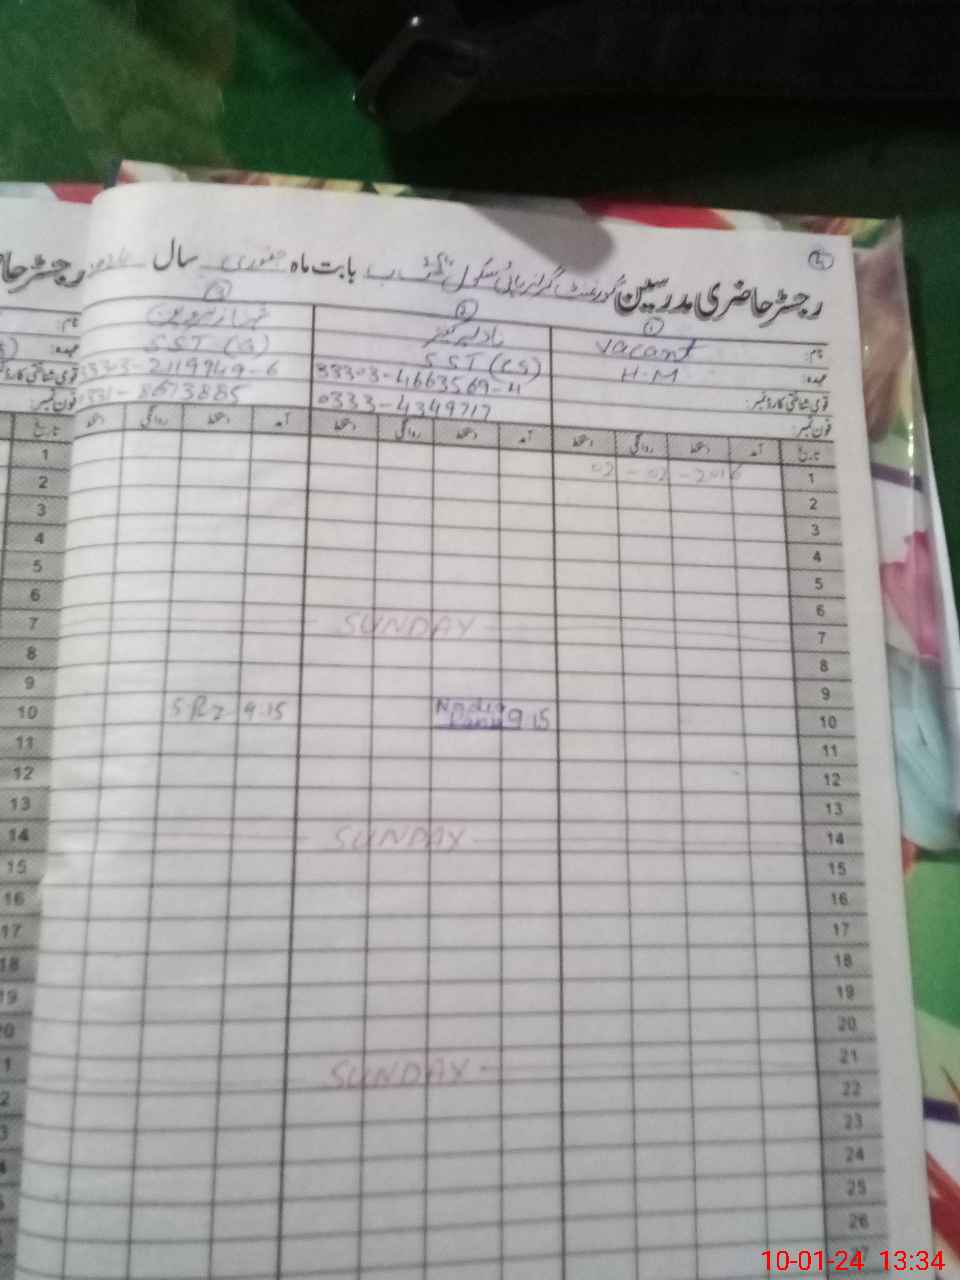 رجسٹر حاضری مدرسین گورنمنٹ گرلز ہائی سکول بابت ماہ جنوری سال
رجسٹر حا
① ② ③
نام: Vacant
نام:
عہدہ: H.M SST (CS) SST (G)
عہدہ:
قومی شناختی کارڈ نمبر: 33303-4663569-4 33303-2119949-6
قومی شناختی کارڈ
فون نمبر: 0333-4349717 0331-8673885
فون نمبر:
تاریخ آمد دستخط روانگی دستخط آمد دستخط روانگی دستخط آمد دستخط روانگی دستخط تاریخ
1 02-02-2016 1
2 2
3 3
4 4
5 5
6 6
7 SUNDAY 7
8 8
9 9
10 SRZ 9.15 Nadia 9.15 10
11 11
12 12
13 13
14 SUNDAY 14
15 15
16 16
17 17
18 18
19 19
20 20
21 SUNDAY 21
22
23
24
25
26
10-01-24 13:34